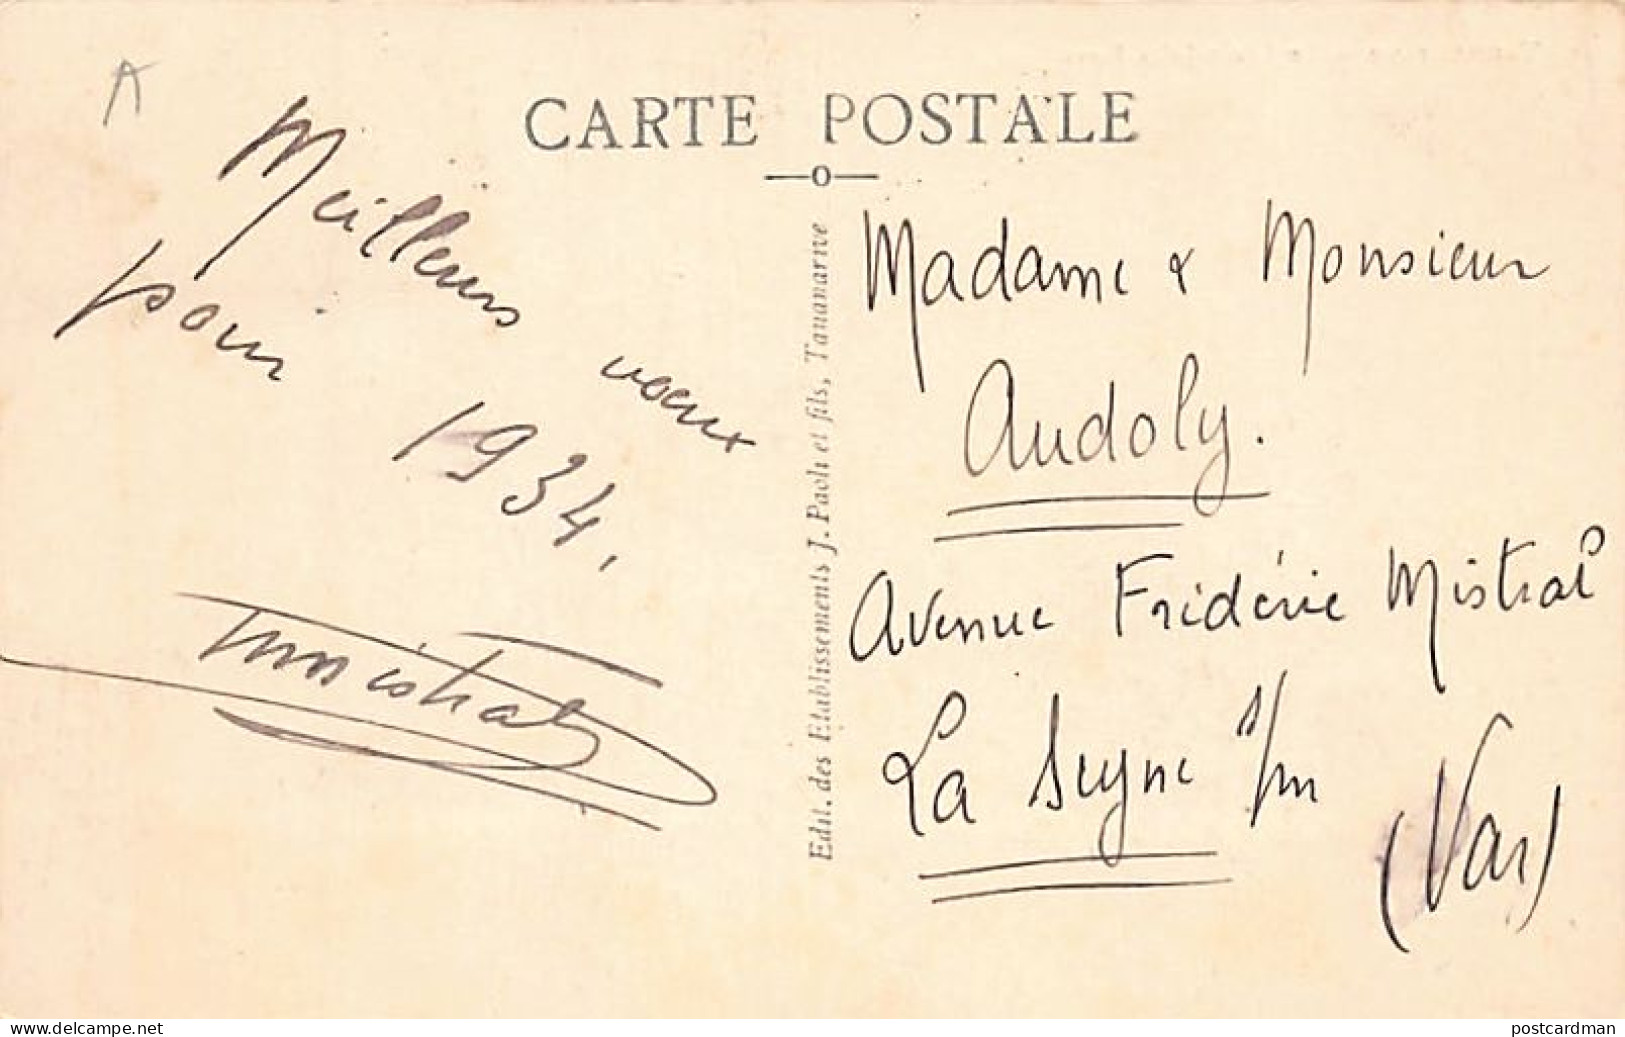 A
CARTE POSTALE
Meilleurs voeux
pour 1934.
Edit. des Etablissements J. Paoli et fils, Tananarive
Madame & Monsieur
Audoly.
Avenue Frédéric Mistral
La Seyne s/m
(Var)
www.delcampe.net
postcardman